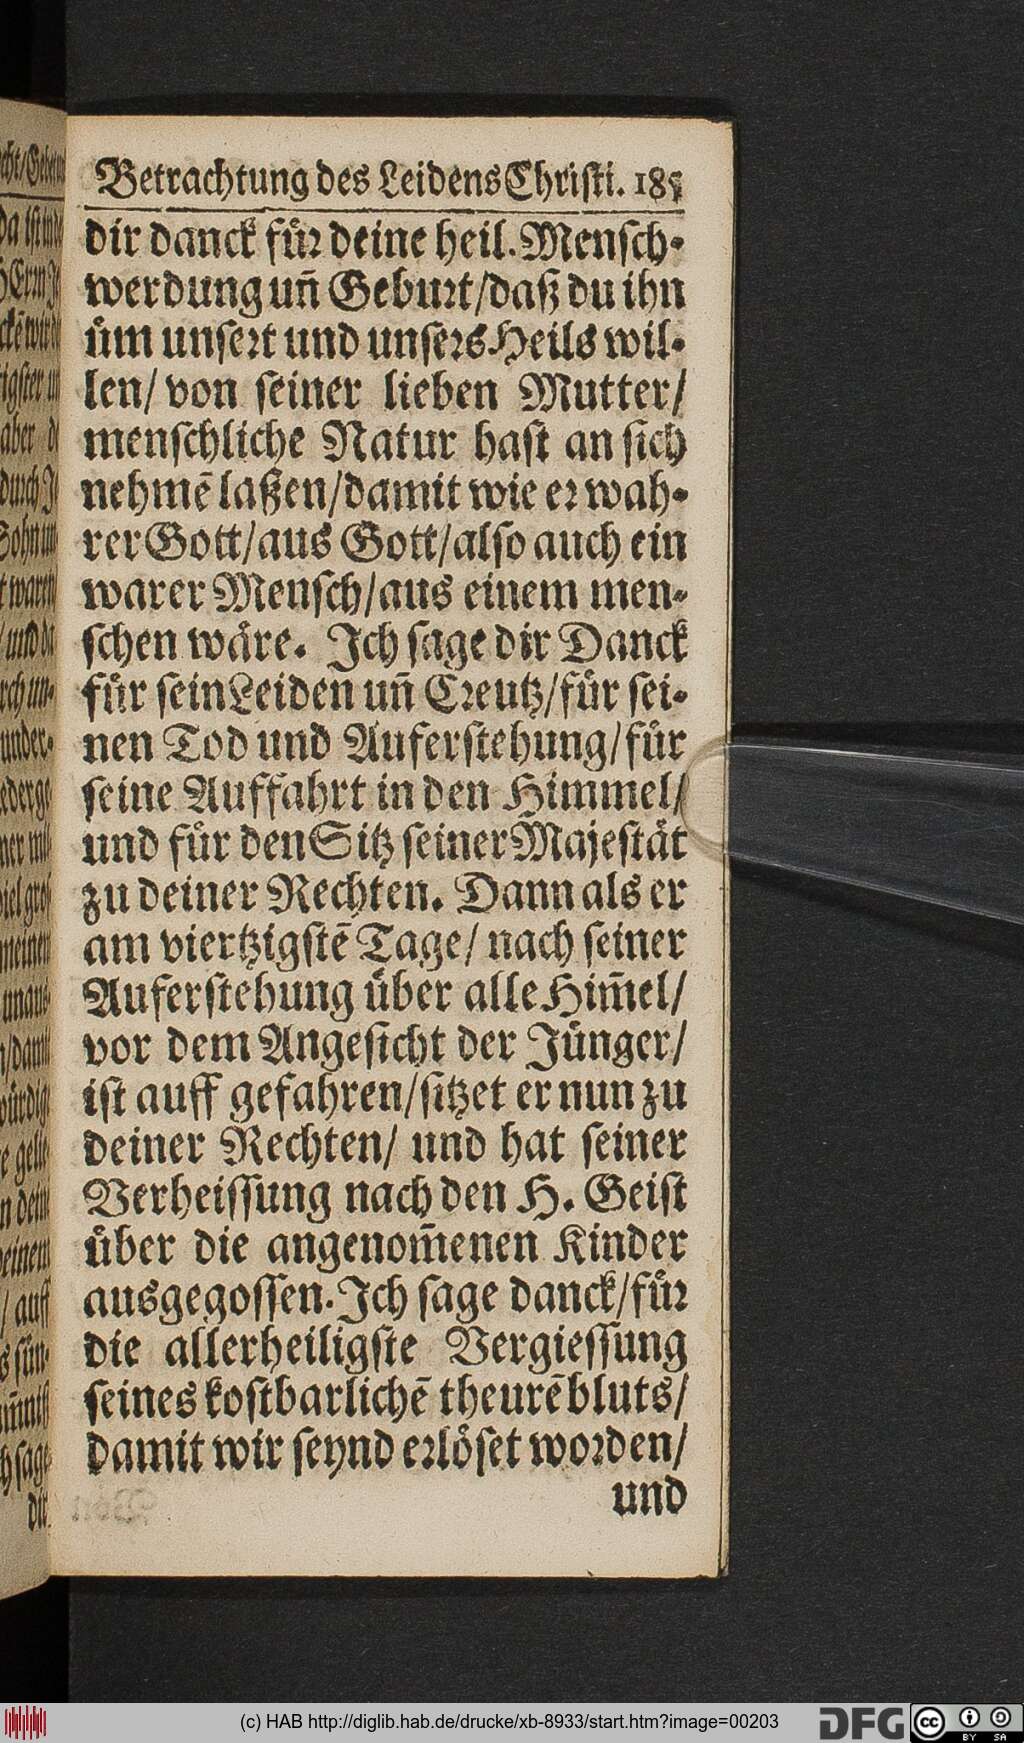 Betrachtung des Leidens Christi. 185
dir danck für deine heil. Mensch⸗
werdung uñ Geburt/daß du ihn
üm unsert und unsers Heils wil⸗
len/ von seiner lieben Mutter/
menschliche Natur hast an sich
nehmē laßen/damit wie er wah⸗
rer Gott/aus Gott/also auch ein
warer Mensch/aus einem men⸗
schen wäre. Ich sage dir Danck
für sein Leiden uñ Creutz/für sei⸗
nen Tod und Auferstehung/für
seine Auffahrt in den Himmel/
und für den Sitz seiner Majestät
zu deiner Rechten. Dann als er
am viertzigstē Tage/ nach seiner
Auferstehung über alle Him̃el/
vor dem Angesicht der Jünger/
ist auff gefahren/sitzet er nun zu
deiner Rechten/ und hat seiner
Verheissung nach den H. Geist
über die angenom̃enen Kinder
ausgegossen. Ich sage danck/für
die allerheiligste Vergiessung
seines kostbarlichē theurē bluts/
damit wir seynd erlöset worden/
und
(c) HAB http://diglib.hab.de/drucke/xb-8933/start.htm?image=00203
DFG
cc BY SA